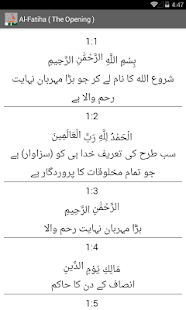 4:47
Al-Fatiha ( The Opening )
1:1
بِسْمِ اللَّهِ الرَّحْمَٰنِ الرَّحِيمِ
شروع الله کا نام لے کر جو بڑا مہربان نہایت
رحم والا ہے
1:2
الْحَمْدُ لِلَّهِ رَبِّ الْعَالَمِينَ
سب طرح کی تعریف خدا ہی کو (سزاوار) ہے
جو تمام مخلوقات کا پروردگار ہے
1:3
الرَّحْمَٰنِ الرَّحِيمِ
بڑا مہربان نہایت رحم والا
1:4
مَالِكِ يَوْمِ الدِّينِ
انصاف کے دن کا حاکم
1:5